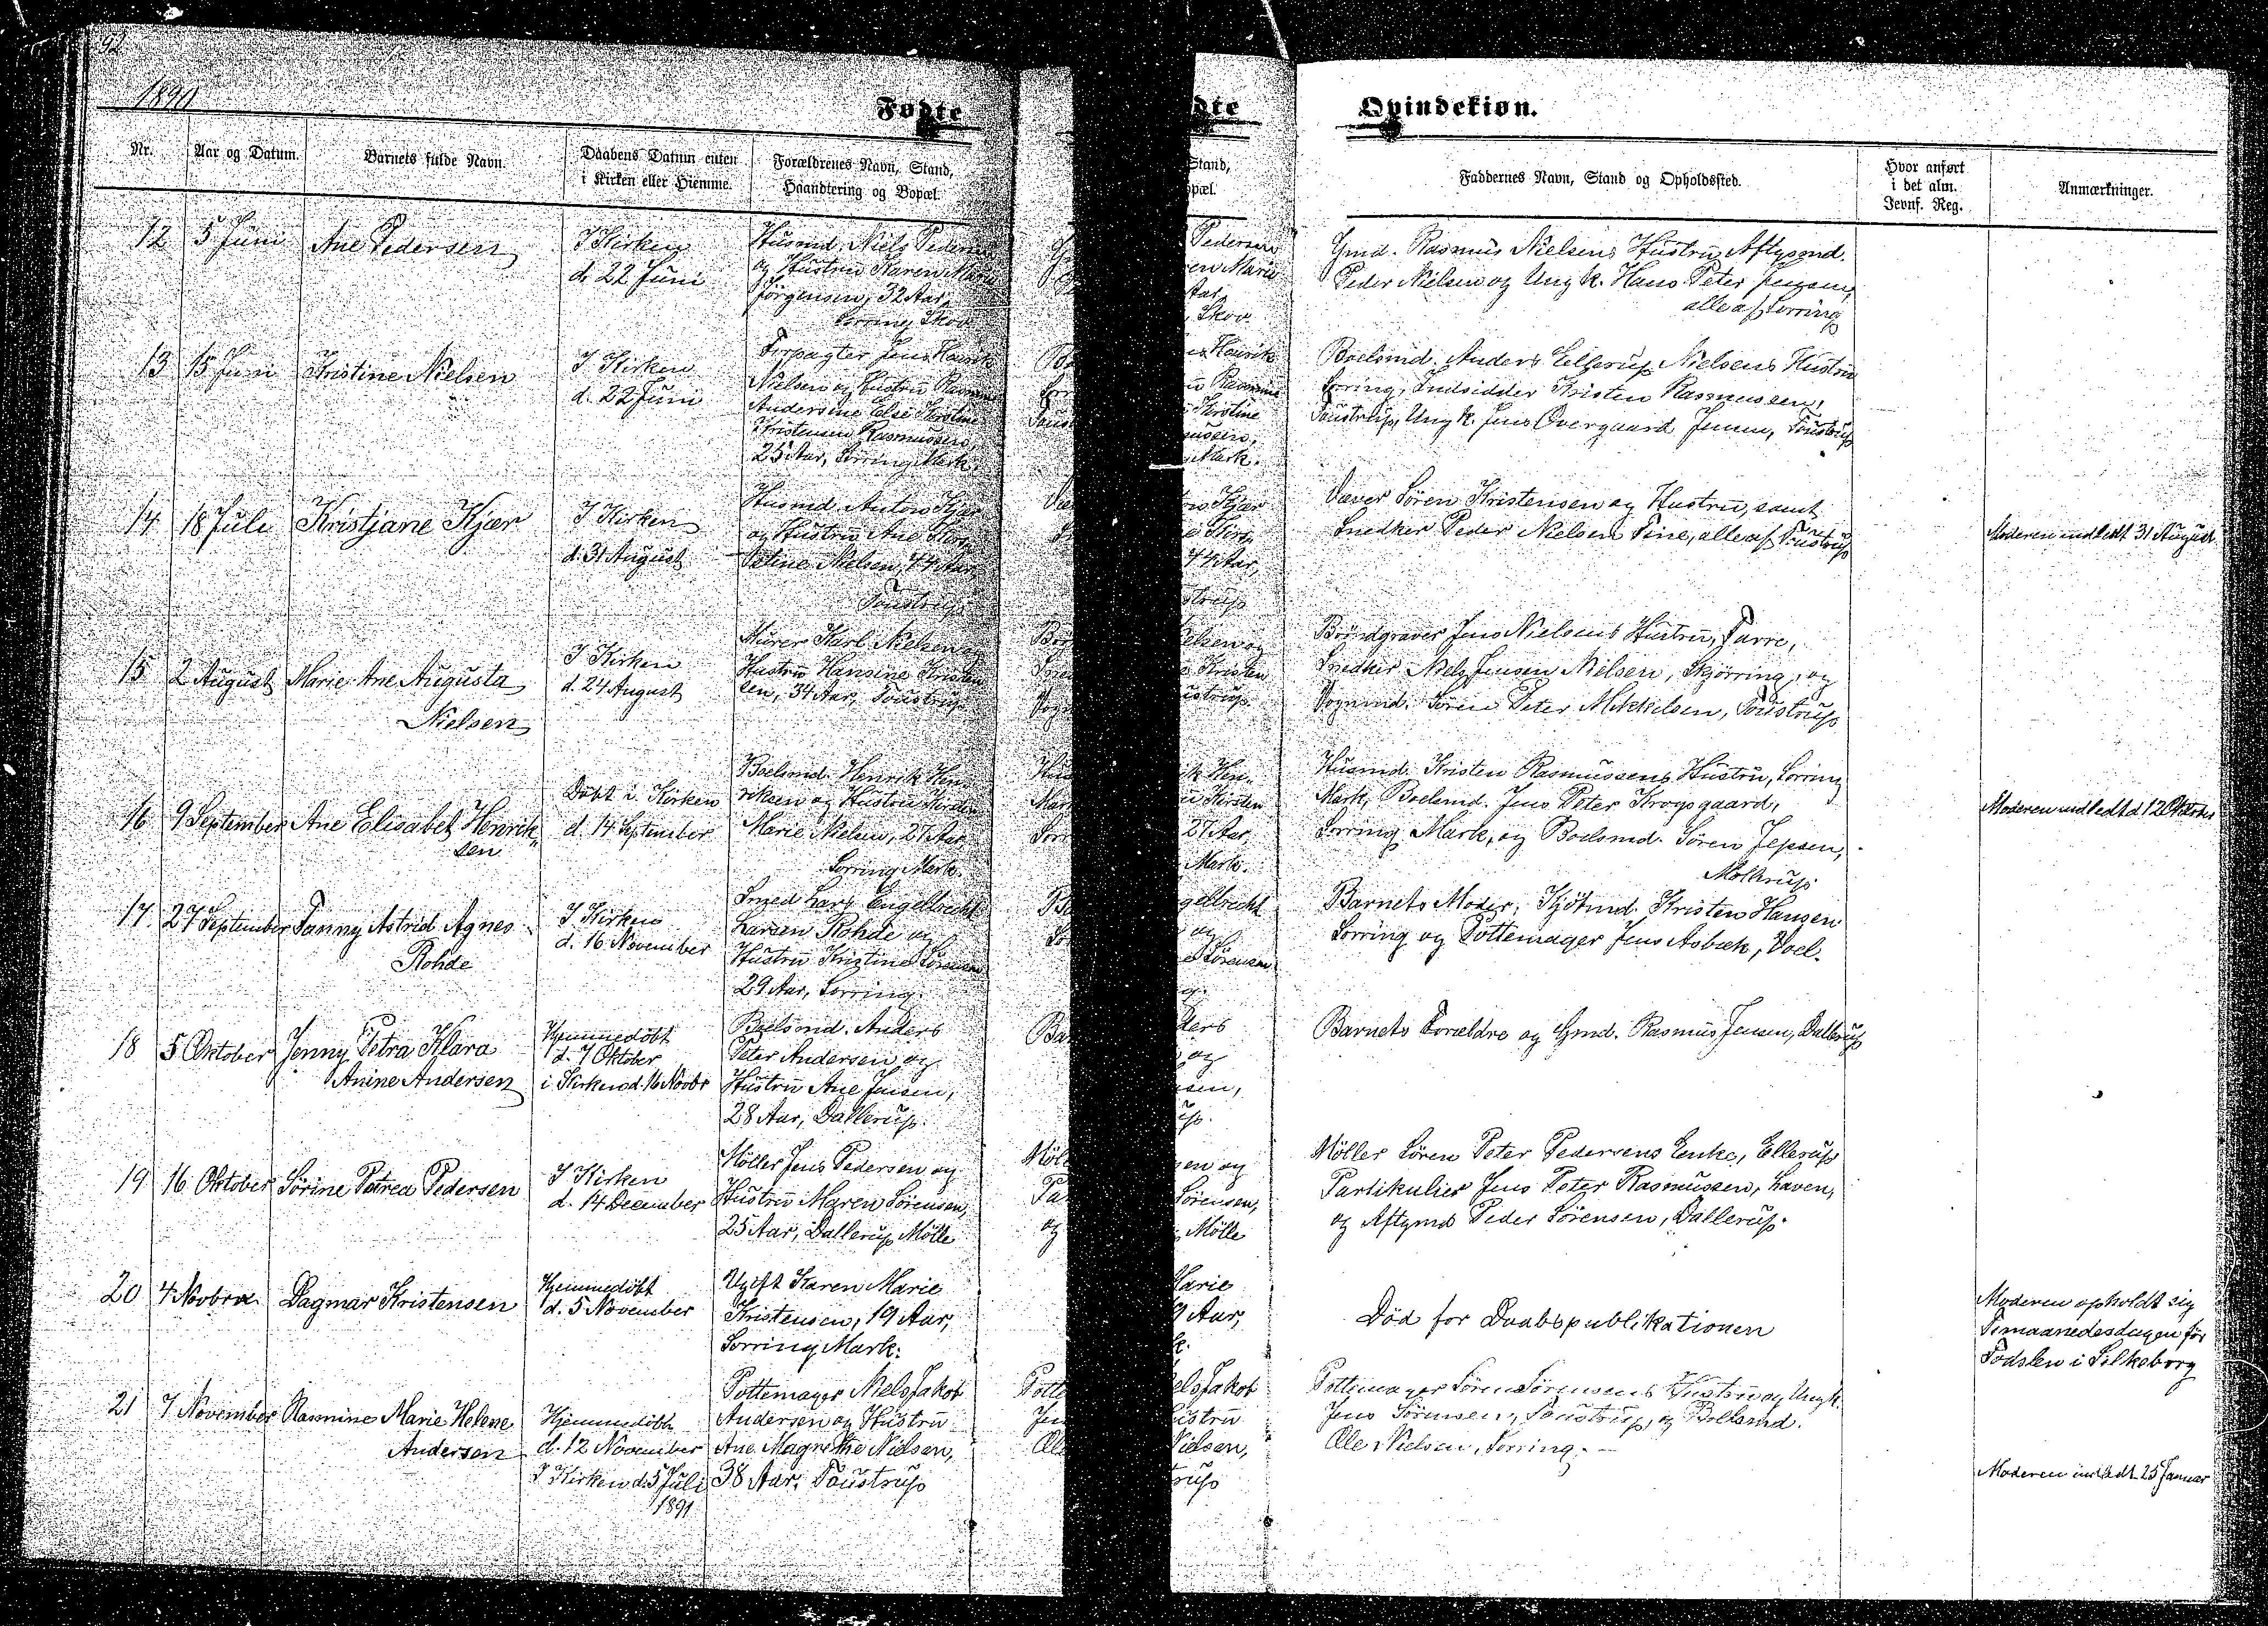 92
1890
Fødte
Qvindekiøn.
Nr.
Aar og Datum.
Barnets fulde Navn.
Daabens Datum enten
i Kirken eller Hiemme.
Forældrenes Navn, Stand,
Haandtering og Bopæl.
Faddernes Navn, Stand og Opholdssted.
Hvor anført
i det alm.
Jevnf. Reg.
Anmærkninger.
12
5 Juni
Ane Pedersen
I Kirken
d. 22 Juni
Husmd. Niels Pedersen
og Hustru Karen Marie
Jörgensen, 32 Aar,
Sorring Skov
Gmd. Rasmus Nielsens Hustru, Aftgsmd.
Peder Nielsen og Ung K. Hans Peter
alle af Sorring
13
15 Juni
Kristine Nielsen
I Kirken
d. 22 Juni
Forpagter Jens Henrik
Nielsen og Hustru Rasmine
Andersine Else Kirstine
Kristensen Rasmussen,
25 Aar, Sorring Mark.
Boelsmd. Anders Ellerup Nielsens Hustru
Sorring, Indsidder Kristen Rasmussen,
Toustrup, Ung K. Jens Overgaard Jensen, Toustrup
14
18 Juli
Kristjane Kjær
I Kirken
d. 31 August
Husmd. Anton Kjær
og Hustru Ane Kirs
Nielsen, 44 Aar,
Toustrup
Væver Sören Kristensen og Hustru, samt
Snedker Peder Nielsen Fine, alle af Toustrup
Moderen indledt 31 August
15
2 August
Marie Ane Augusta
Nielsen
I Kirken
d. 24 August
Murer Karl Nielsen og
Hustru Hansine Kristen
sen, 34 Aar, Toustrup
Bröndgraver Jens Nielsens Hustru, Farre,
Snedker Niels Jensen Nielsen, Skjörring, og
Sognmd. Sören Peter Mikkelsen, Toustrup
16
9 September
Ane Elisabet Henrik„
sen
Döbt i Kirken
d. 14 September
Boelsmd. Henrik Hen
riksen og Hustru Kirsten
Marie Nielsen, 27 Aar,
Sorring Mark.
Husmd. Kristen Rasmussens Hustru, Sorring
Mark, Boelsmd. Jens Peter Krogsgaard,
Sorring Mark, og Boelsmd. Sören Jepsen,
Mollerup
Moderen indledt d. 12 Oktober
17
27 September
Fanny Astrid Agnes
Rohde
I Kirken
d. 16 November
Smed Lars Engelbrecht
Larsen Rohde og
Hustru Kristine Sörensen
29 Aar, Sorring.
Barnets Moder, Kjöbmd. Kristen Hansen
Sorring og Pottemager Jens Asbæk, Voel.
18
5 Oktober
Jenny Petra Klara
Anine Andersen
Hjemmedöbt
d. 7 Oktober
i Kirken d. 16 Novbr
Boelsmd. Anders
Peter Andersen og
Hustru Ane Jensen,
28 Aar, Dallerup.
Barnets Forældre og Gmd. Rasmus Jensen, Dallerup
19
16 Oktober
Sörine Petrea Pedersen
I Kirken
d. 14 December
Möller Jens Pedersen og
Hustru Maren Sörensen,
25 Aar, Dallerup Mölle
Möller Sören Peter Pedersens Enke, Ellerup
Partikulier Jens Peter Rasmussen, Laven,
og Aftgmd Peder Sörensen, Dallerup.
20
4 Novbr
Dagmar Kristensen
Hjemmedöbt
d. 5 November
Ugift Karen Marie
Kristensen, 19 Aar,
Sorring Mark.
Död for Daabspublikationen
Moderen opholdt sig
Timaanedesdagen för
Födslen i Silkeborg
21
7 November
Rasmine Marie Helene
Andersen
Hjemmedöbt
d. 12 November
I Kirken d. 5 Juli
1891
Pottemager Niels Jakob
Andersen og Hustru
Ane Magrethe Nielsen,
38 Aar, Toustrup
Pottemager Sören Sörensens Hustru og Ung K.
Jens Sörensen, Toustrup, og Boelsmd.
Ole Nielsen, Sorring.
Moderen indledt 25 Januar